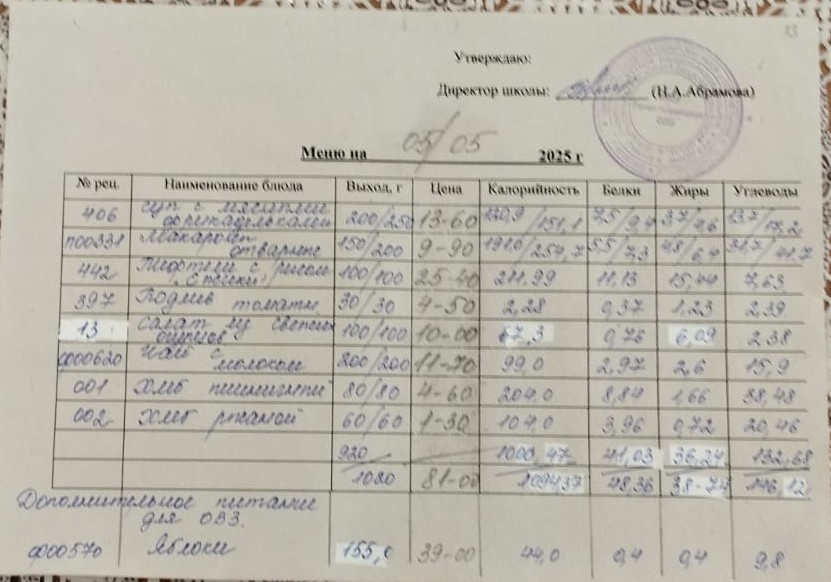 13
Утверждаю:
Директор школы: (Н.А.Абрамова)
Меню на 05/05 2025 г
№ рец. Наименование блюда Выход, г Цена Калорийность Белки Жиры Углеводы
406 суп с мясными фрикадельками 200/250 13-60 120,9/151,1 7,5/9,4 3,7/4,6 13,7/17,2
п00331 Макароны отварные 150/200 9-90 191,0/254,7 5,5/7,3 4,8/6,4 31,7/41,7
442 Тефтели с рисом 100/100 25-40 211,99 11,13 15,44 7,63
397 Подлив томатн. 30/30 4-50 2,28 0,37 1,23 2,39
13 Салат из свежих огурцов 100/100 10-00 67,3 0,76 6,09 2,38
ф00620 Чай с молоком 200/200 11-70 99,0 2,97 2,6 15,9
001 Хлеб пшеничный 80/80 4-60 204,0 8,84 1,66 38,48
002 Хлеб ржаной 60/60 1-30 104,0 3,96 0,72 20,46
920 1000,47 41,03 36,24 132,68
1020 81-00 1094,37 48,36 38-74 146,12
Дополнительное питание
для ОВЗ.
ф00570 Яблоки 155,0 39-00 44,0 0,4 0,4 9,8